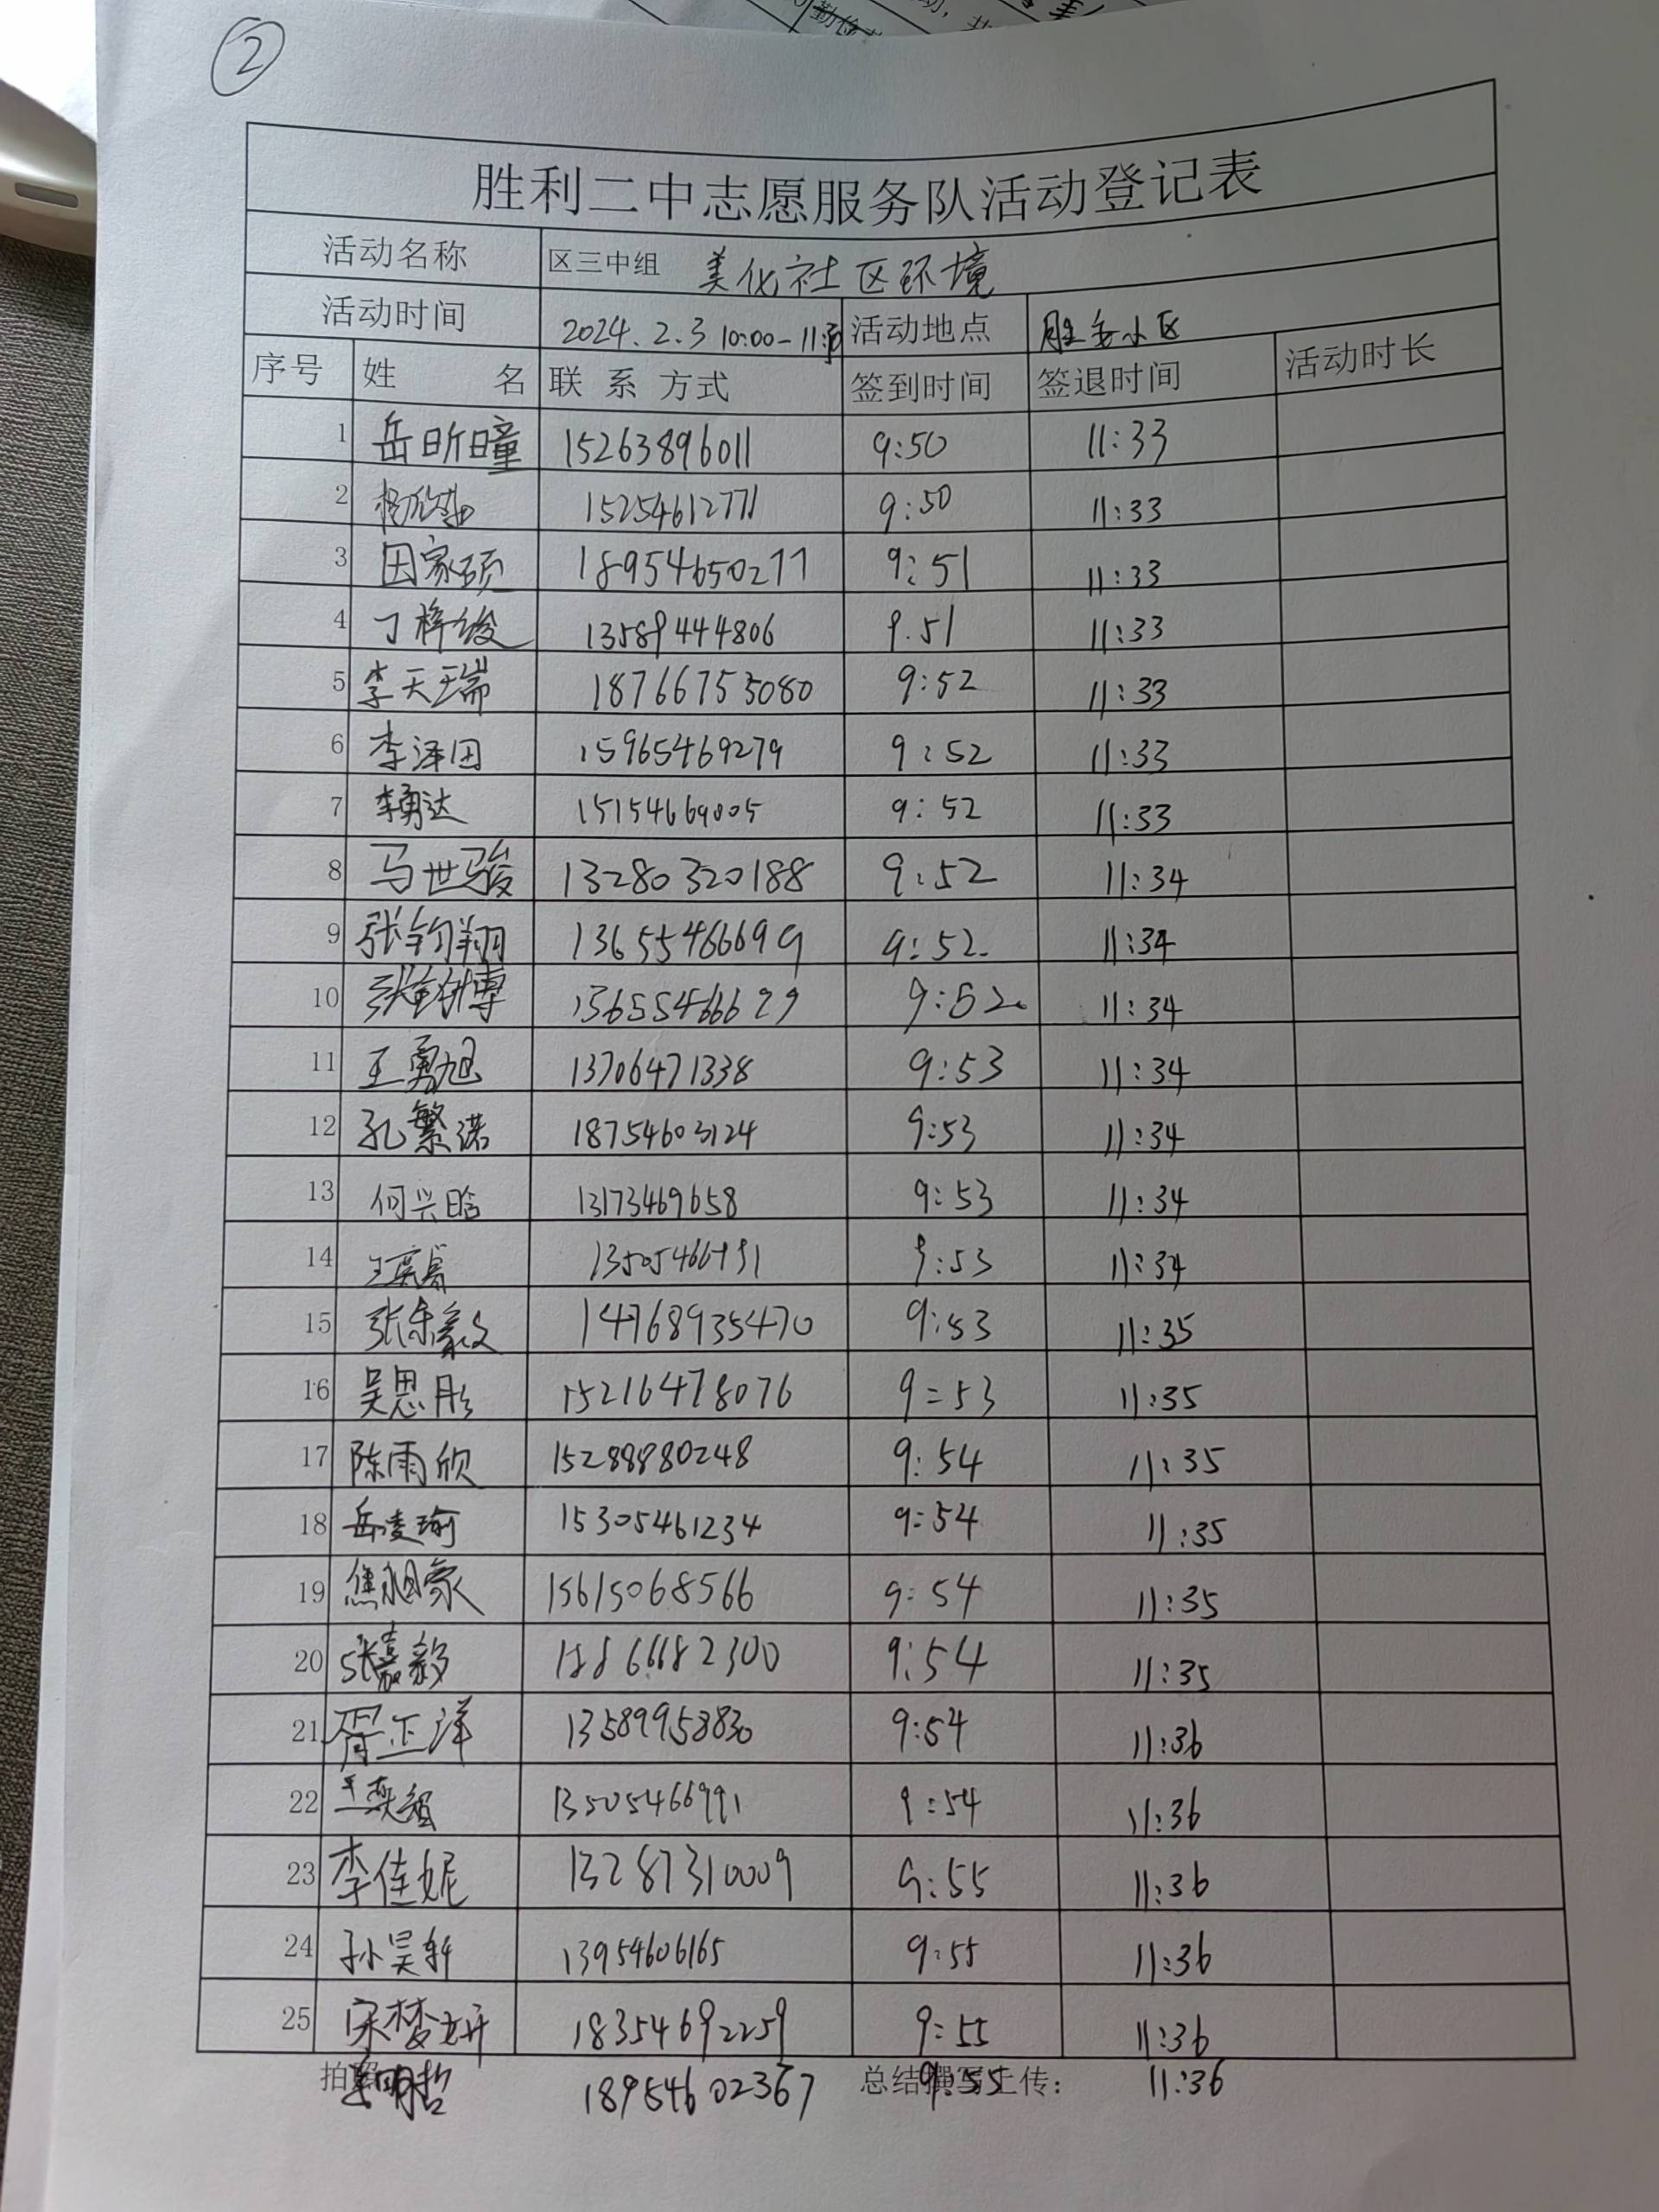 ②
胜利二中志愿服务队活动登记表
活动名称 区三中组 美化社区环境
活动时间 2024.2.3 10:00-11:30 活动地点 胜安小区
序号 姓 名 联 系 方式 签到时间 签退时间 活动时长
1 岳昕瞳 15263896011 9:50 11:33
2 15254612771 9:50 11:33
3 田家硕 18954650277 9:51 11:33
4 丁梓俊 13589444806 9.51 11:33
5 李天瑞 18766753080 9:52 11:33
6 李泽田 15965469279 9:52 11:33
7 李勇达 15154669005 9:52 11:33
8 马世骏 13280320188 9:52 11:34
9 张钧翔 13655466699 9:52. 11:34
10 张钧博 13655466629 9:52. 11:34
11 王勇旭 13706471338 9:53 11:34
12 孔繁诺 18754603124 9:53 11:34
13 何兴晗 13173469658 9:53 11:34
14 9:53 11:34
15 14768935470 9:53 11:35
16 吴思彤 15216478076 9=53 11:35
17 陈雨欣 15288880248 9:54 11:35
18 岳凌瑜 15305461234 9:54 11:35
19 15615068566 9:54 11:35
20 张嘉毅 9:54 11:35
21 胥正洋 13589953830 9:54 11:36
22 13505466991 9:54 11:36
23 李佳妮 13287310009 9:55 11:36
24 孙昊轩 13954606165 9:55 11:36
25 宋梦妍 18354692259 9:55 11:36
明哲 18954602367 总结撰写上传： 9:55 11:36